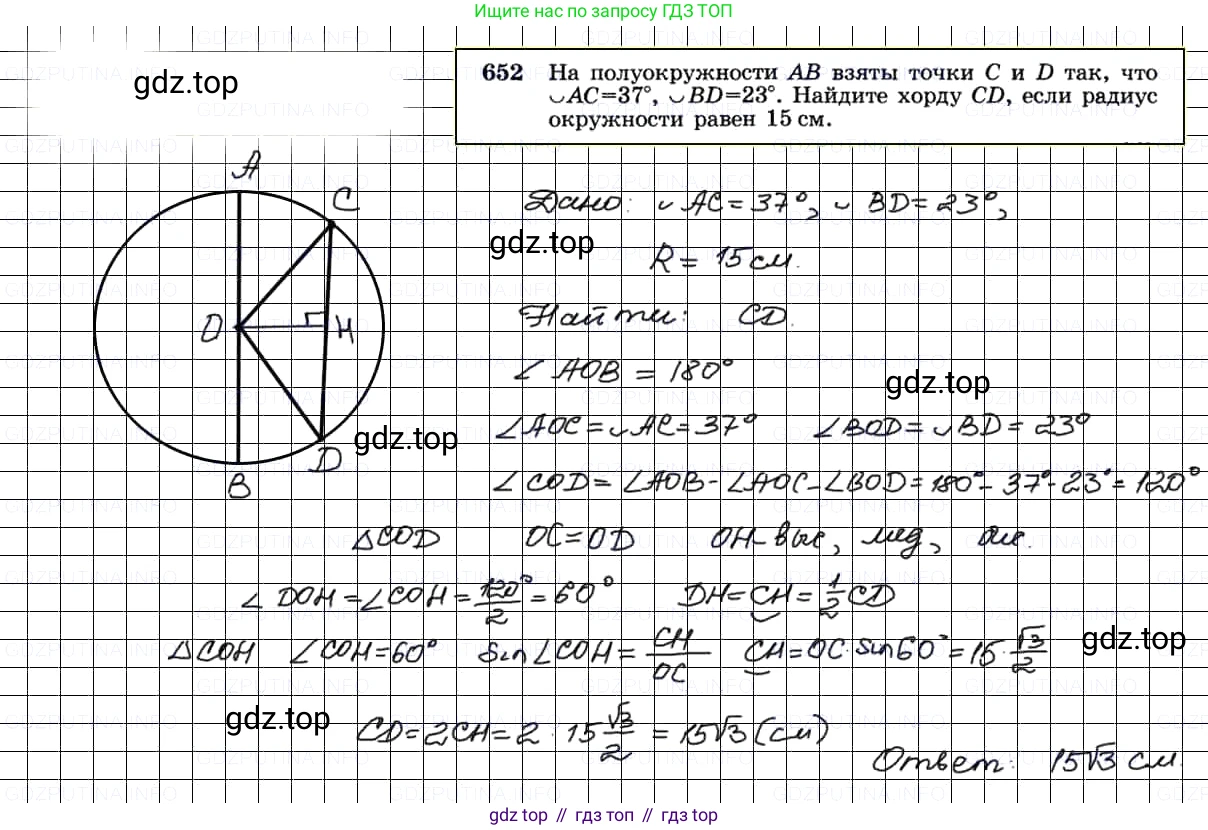 Ищите нас по запросу ГДЗ ТОП
gdz.top
652 На полуокружности AB взяты точки C и D так, что
◡AC=37°, ◡BD=23°. Найдите хорду CD, если радиус
окружности равен 15 см.
A
C
O
H
D
B
Дано: ◡AC = 37°, ◡BD = 23°,
gdz.top
R = 15 см.
Найти: CD.
∠AOB = 180°
gdz.top
∠AOC = ◡AC = 37° ∠BOD = ◡BD = 23°
gdz.top
∠COD = ∠AOB - ∠AOC - ∠BOD = 180° - 37° - 23° = 120°
△COD OC = OD OH - выс, мед, бис.
∠DOH = ∠COH = 120°/2 = 60° DH = CH = 1/2 CD
△COH ∠COH = 60° sin∠COH = CH/OC CH = OC·sin60° = 15·√3/2
gdz.top
gdz.top
CD = 2CH = 2·15 √3/2 = 15√3 (см)
Ответ: 15√3 см.
gdz top // гдз топ // gdz top
GDZPUTINA.INFO